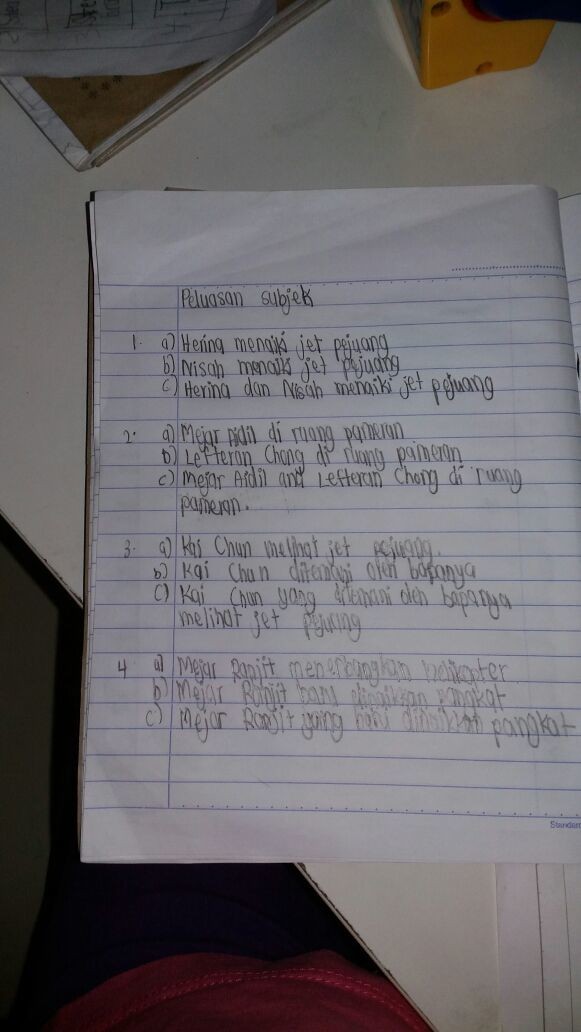 Peluasan subjek
1. a) Herina menaiki jet pejuang
b) Nisah menaiki jet pejuang
c) Herina dan Nisah menaiki jet pejuang
2. a) Mejar Aidil di ruang pameran
b) Lefteran Chong di ruang pameran
c) Mejar Aidil and Lefteran Chong di ruang
pameran.
3. a) Kai Chun melihat jet pejuang.
b) Kai Chun ditemani oleh bapanya
c) Kai Chun yang ditemani oleh bapanya
melihat jet
4 a) Mejar Ranjit menerbangkan helikopter
b) Mejar Ranjit baru dinaikkan pangkat
c) Mejar Ranjit yang baru dinaikkan pangkat
Standard